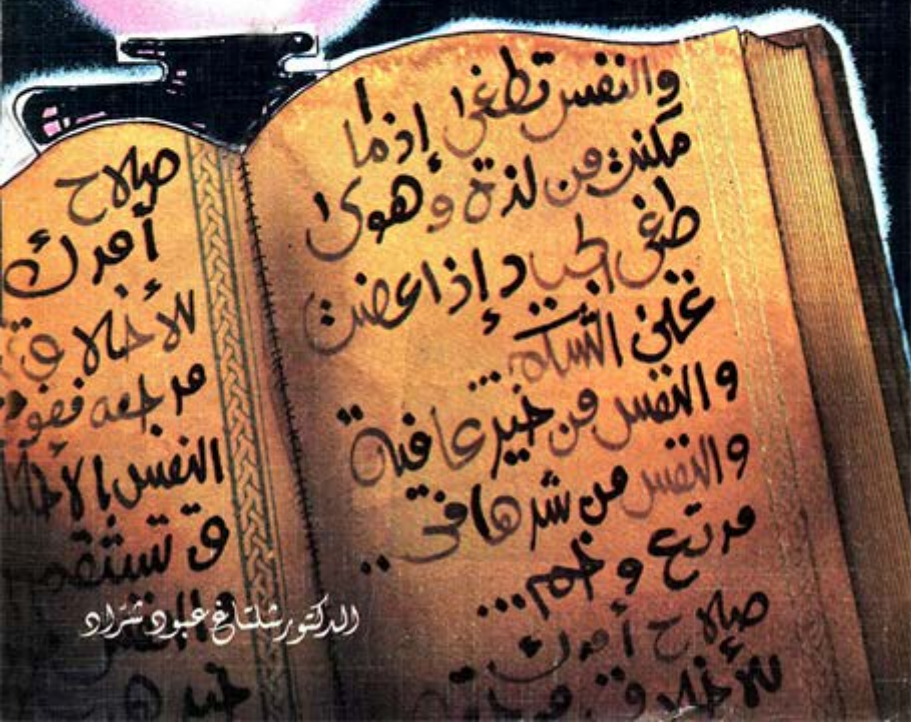 والنفس تطغى إذما
مكنت من لذة وهوى
طغى الجياد إذا عضت
على الشكم...
والنفس من خير عافية
والنفس من شرها في..
مرتع وخم...
صلاح أمرك
للأخلاق مرجعه
صلاح
أمرك
للأخلاق
مرجعه فقوم
النفس بالأخلاق
تستقم
والنفس من
خير
الدكتور شلتاغ عبود شراد